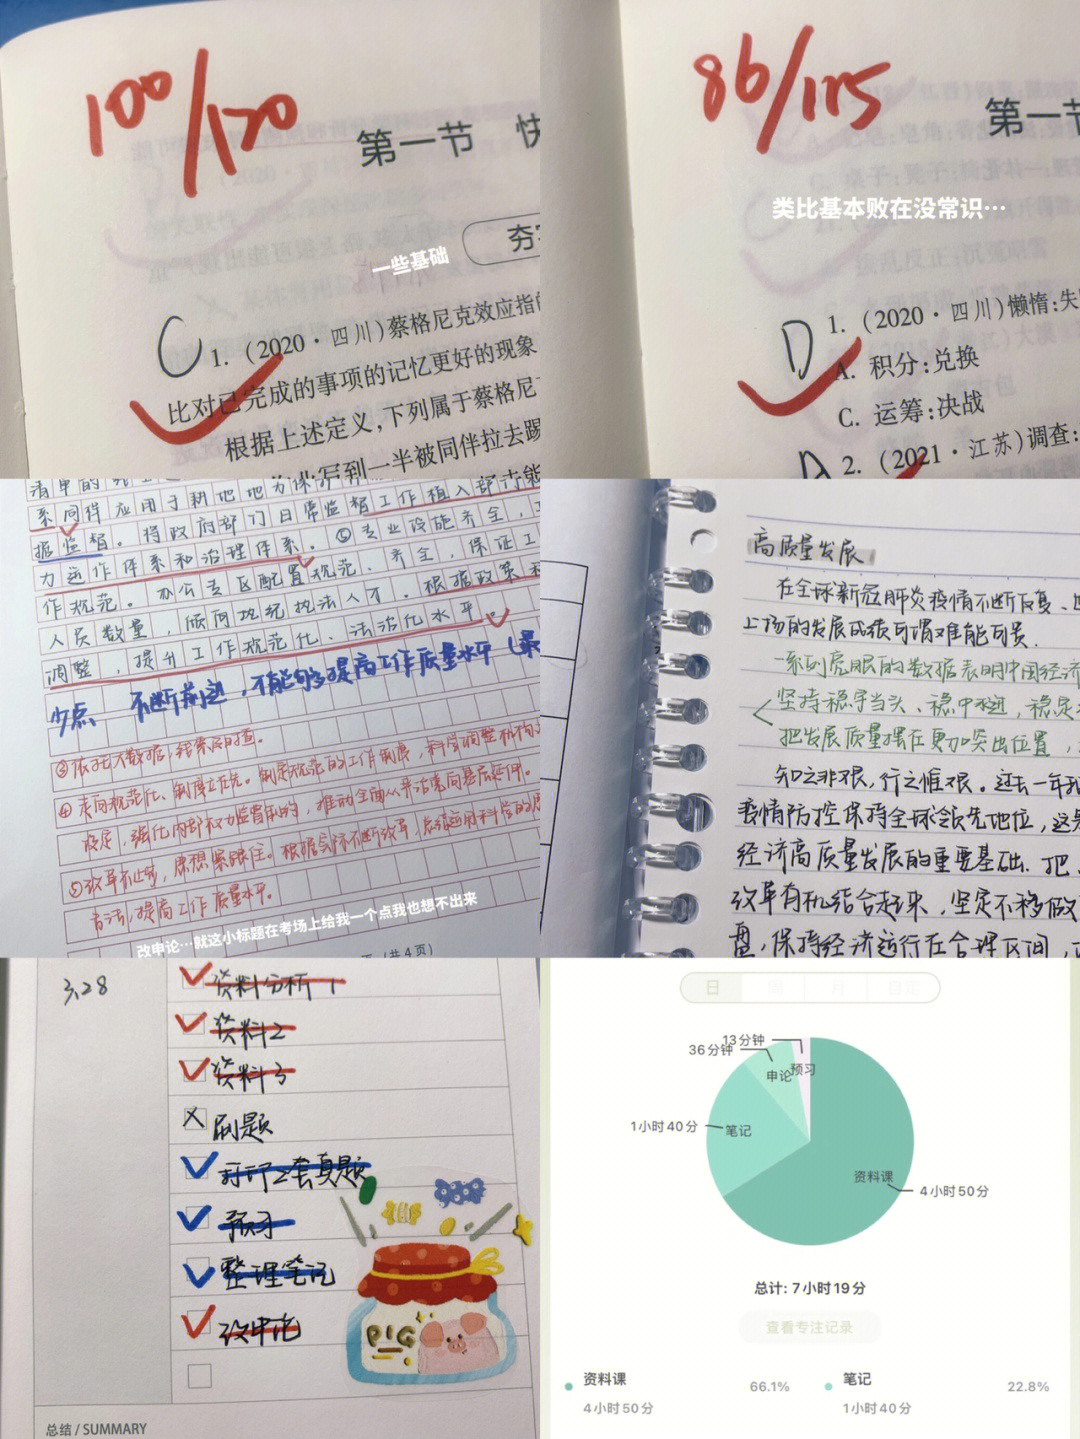 100/120
第一节 快
一些基础
夯
C 1. (2020·四川)蔡格尼克效应指
比对已完成的事项的记忆更好的现象
根据上述定义,下列属于蔡格尼
写到一半被同伴拉去踢
86/115
第一节
类比基本败在没常识…
D 1. (2020·四川)懒惰:失
A. 积分:兑换
C. 运筹:决战
A 2. (2021·江苏)调查:
清单的
系同样应用于耕地地力保
据监督。将政府部门日常监督工作植入部门
力运作体系和治理体系。⑥专业设施齐全,
作规范。办公专区配置规范、齐全,保证工
人员数量,倾向地纪执法人才。根据政策和
调整,提升工作规范化、法治化水平。
少点 不断前进,不能够提高工作质量水平(最
③依托大数据,线索
④走向规范化、制度在先。制定规范的工作制度,科学调整机构
设定,强化内部权力监督制约,推动全面从严治党向基层延伸。
⑤改革不止步,思想紧跟住。根据实际不断改革,总结运用科学的
方法,提高工作质量水平。
改申论…就这小标题在考场上给我一个点我也想不出来
(共4页)
高质量发展
在全球新冠肺炎疫情不断反复、
上场的发展成绩可谓难能可贵。
一系列亮眼的数据表明中国经济
坚持稳字当头、稳中求进,稳定
把发展质量摆在更加突出位置,
知之非艰,行之惟艰。过去一年我
疫情防控保持全球领先地位,这是
经济高质量发展的重要基础.把
改革有机结合起来,坚定不移做
盘,保持经济运行在合理区间,
3.28
资料分析1
资料2
资料3
刷题
打印2套真题
预习
整理笔记
改申论
PIG
总结 / SUMMARY
日 周 月 自定
13分钟
36分钟
申论
预习
1小时40分
笔记
资料课
4小时50分
总计: 7小时19分
查看专注记录
资料课 66.1%
4小时50分
笔记 22.8%
1小时40分